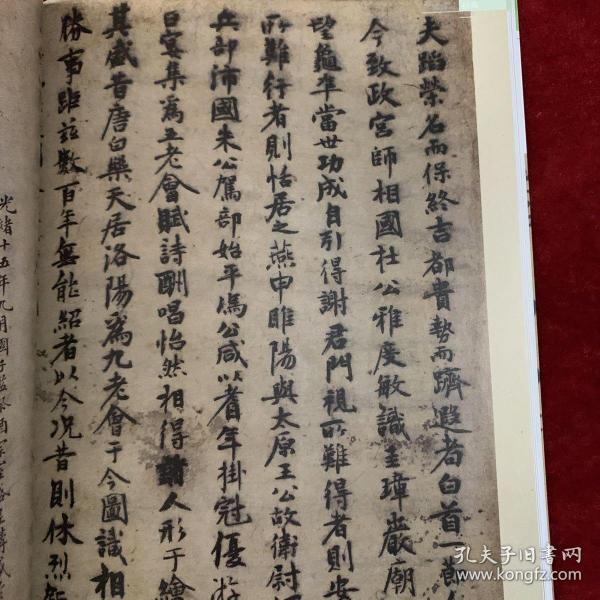 夫蹈榮名而保終吉都貴勢而躋遐耆白首一節
今致政宮師相國杜公雅度敏識圭璋巖廟
望龜準當世功成自引得謝君門視所難得者則安
所難行者則恬居之燕申睢陽與太原王公故衛尉
兵部沛國朱公駕部始平馮公咸以耆年掛冠優游
日宴集為五老會賦詩酬唱怡然相得諸人形于繪
其盛昔唐白樂天居洛陽為九老會于今圖識相
勝事距茲數百年無能紹者以今況昔則休烈
光緒十五年九月國子監祭酒宗室盛昱
孔夫子旧书网
www.kongfz.com